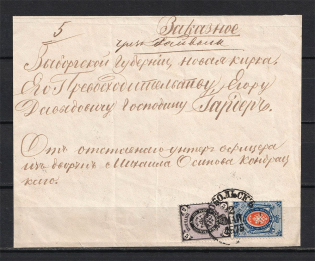 5 Заказное
чрез
Выборгской Губернiи, новая кирка,
Его Превосходительству, Егору
Давыдовичу Господину Гарнеръ.
Отъ отставнаго унтеръ офицера
изъ дворянъ Михаила Осипова Кондрац
каго.